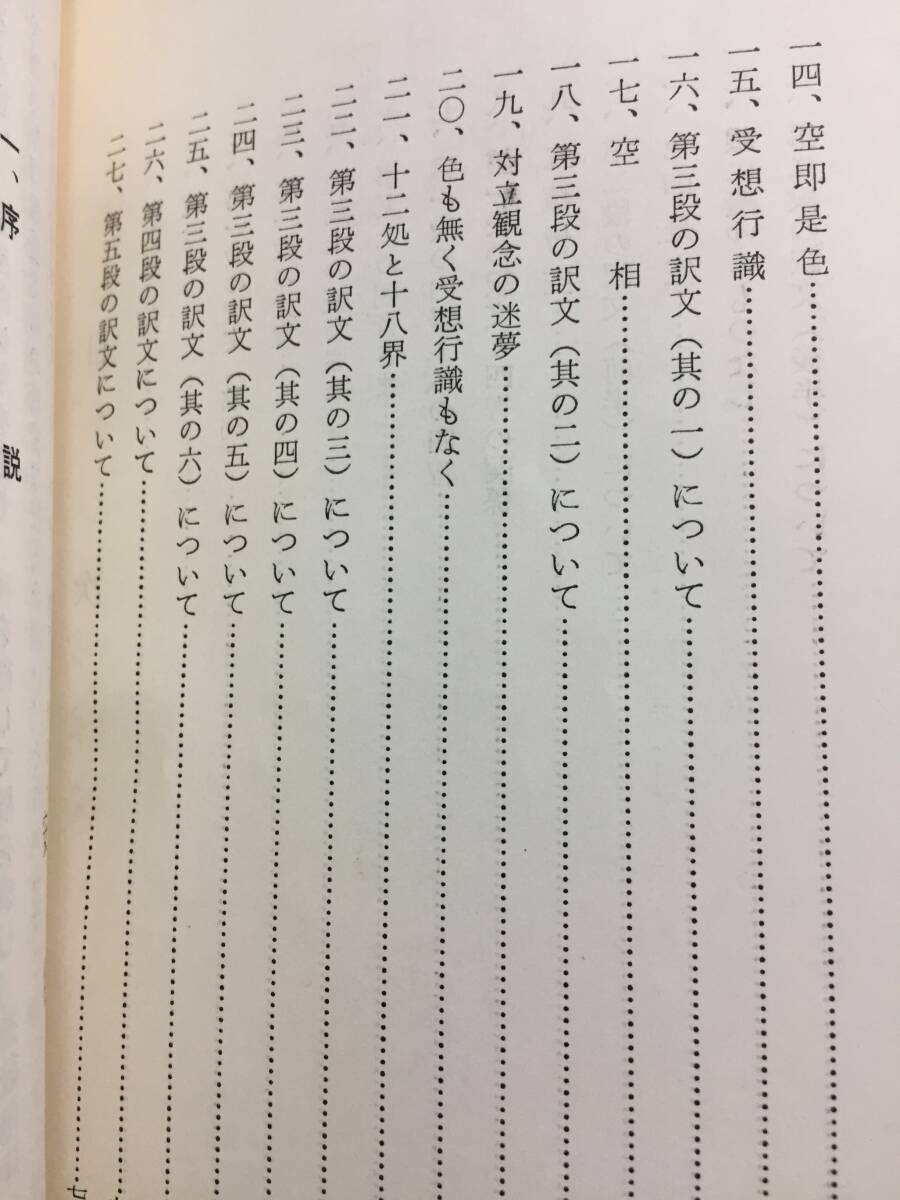 一四、空即是色
一五、受想行識
一六、第三段の訳文（其の一）について
一七、空　相
一八、第三段の訳文（其の二）について
一九、対立観念の迷夢
二〇、色も無く受想行識もなく
二一、十二処と十八界
二二、第三段の訳文（其の三）について
二三、第三段の訳文（其の四）について
二四、第三段の訳文（其の五）について
二五、第三段の訳文（其の六）について
二六、第四段の訳文について
二七、第五段の訳文について
一、序　説